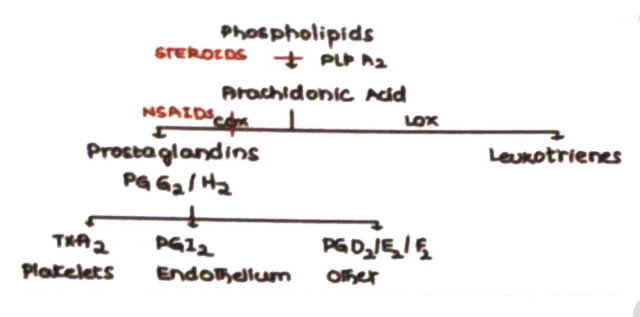 Phospholipids
STEROIDS PLP A2
Arachidonic Acid
NSAIDS COX LOX
Prostaglandins Leukotrienes
PG G2/H2
TXA2 PGI2 PGD2/E2/F2
Platelets Endothelium Other